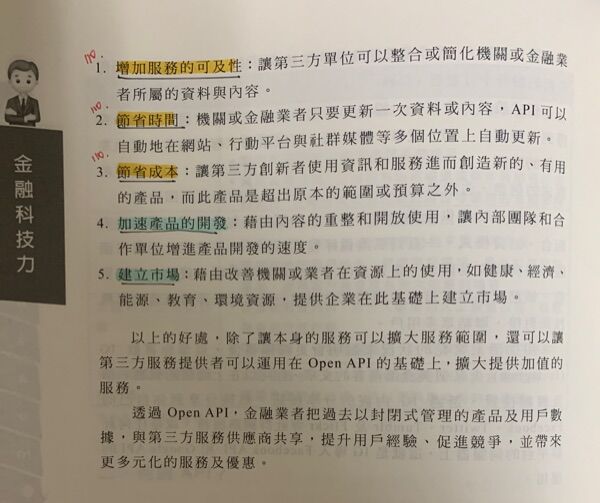 金融科技力
110.
1. 增加服務的可及性：讓第三方單位可以整合或簡化機關或金融業
者所屬的資料與內容。
110.
2. 節省時間：機關或金融業者只要更新一次資料或內容，API 可以
自動地在網站、行動平台與社群媒體等多個位置上自動更新。
110.
3. 節省成本：讓第三方創新者使用資訊和服務進而創造新的、有用
的產品，而此產品是超出原本的範圍或預算之外。
4. 加速產品的開發：藉由內容的重整和開放使用，讓內部團隊和合
作單位增進產品開發的速度。
5. 建立市場：藉由改善機關或業者在資源上的使用，如健康、經濟、
能源、教育、環境資源，提供企業在此基礎上建立市場。
以上的好處，除了讓本身的服務可以擴大服務範圍，還可以讓
第三方服務提供者可以運用在 Open API 的基礎上，擴大提供加值的
服務。
透過 Open API，金融業者把過去以封閉式管理的產品及用戶數
據，與第三方服務供應商共享，提升用戶經驗、促進競爭，並帶來
更多元化的服務及優惠。